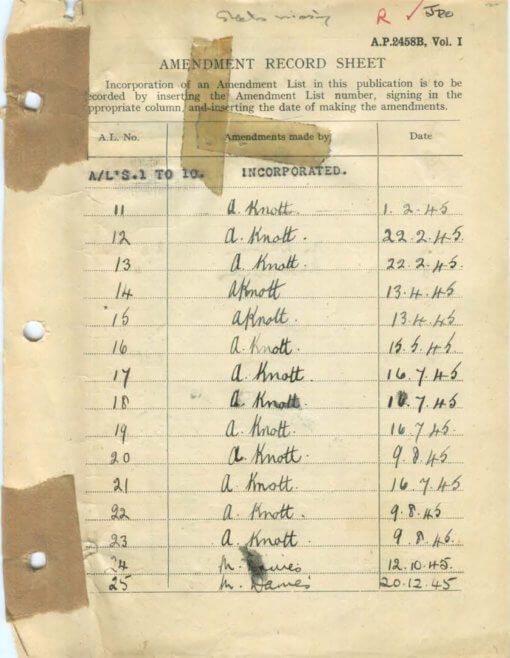 R ✓ JPO
A.P.2458B, Vol. I
AMENDMENT RECORD SHEET
Incorporation of an Amendment List in this publication is to be
recorded by inserting the Amendment List number, signing in the
appropriate column, and inserting the date of making the amendments.
A.L. No. Amendments made by Date
A/L'S.1 TO 10. INCORPORATED.
11 A. Knott. 1.2.45
12 A. Knott. 22.2.45.
13 A. Knott. 22.2.45.
14 A Knott 13.4.45
15 A Knott. 13.4.45
16 A. Knott. 15.5.45
17 A. Knott. 16.7.45
18 A. Knott. 16.7.45
19 A. Knott. 16.7.45.
20 A. Knott. 9.8.45
21 A. Knott. 16.7.45
22 A. Knott. 9.8.45
23 A. Knott. 9.8.45.
24 M. 12.10.45.
25 M. 20.12.45